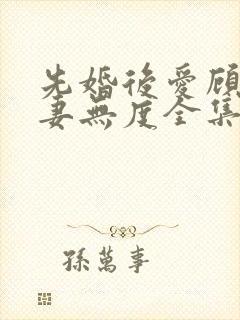 先婚後愛顧
妻無度全集
孫萬事